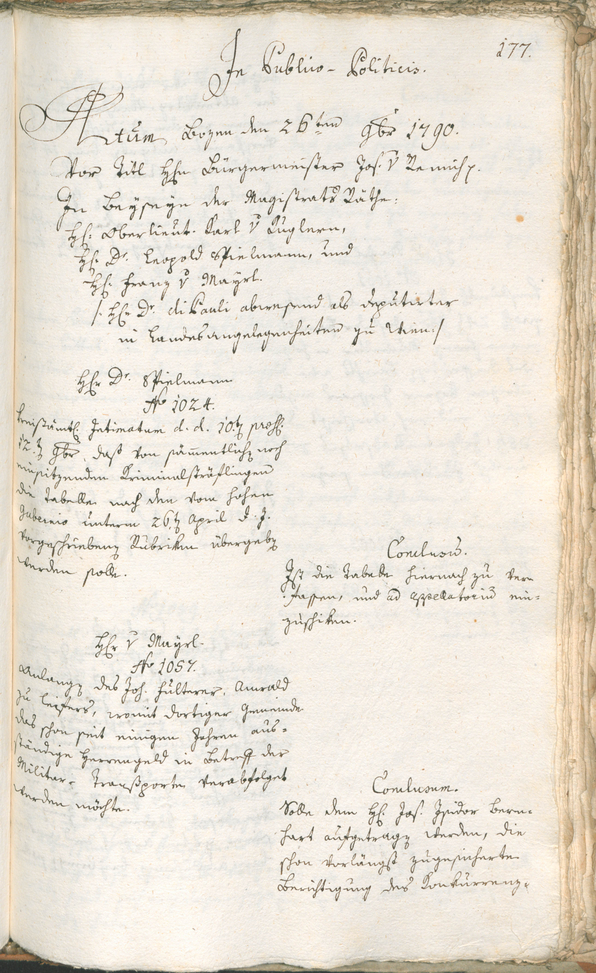 177.
In Publico-Politicis.
Actum Bozen den 26ten 9br 1790.
Vor Titl Hhn Bürgermeister Jos. v Remich p.
In Beyseyn der Magistrats Räthe:
Hh: Oberlieut. Karl v Kuglern,
Hh: Dr. Leopold Spielmann, und
Hh: Franz v Mayrl.
/: Hh: Dr. di Pauli abwesend als deputirter
in Landesangelegenheiten zu Wien :/
Hhr Dr. Spielmann
No 1024.
Kreisämtl. Intimatum d. d. 10. praes.
12. 9br, daß von sämmentlich noch
einsitzenden Kriminalsträflingen
die Tabelle nach den vom hohen
Gubernio unterm 26 April d. J.
vorgeschrieben Rubriken übergeben
werden solle.
Conclusum.
Ist die Tabelle hiernach zu ver-
fassen, und ad appellatorium ein-
zuschiken.
Hhr v Mayrl.
No 1057.
Anlangen des Joh. Hulterer, Anwald
zu Leifers, womit dortiger Gemeinde
das schon seit einigen Jahren aus-
ständige Herrengeld in Betreff der
Militar-Transporte verabfolget
werden möchte.
Conclusum.
Solle dem Hh. Jos. Isidor Bern-
hart aufgetragen werden, die
schon vorlängst zugesicherte
Berichtigung des Konkurrenz-